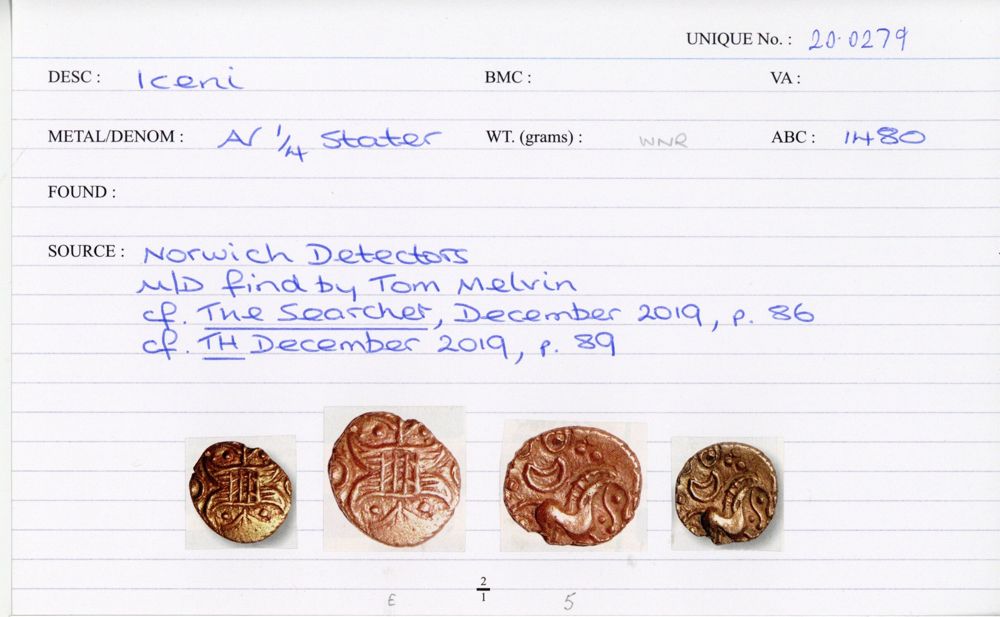 UNIQUE No. : 20.0279
DESC : Iceni BMC : VA :
METAL/DENOM : AV 1/4 Stater WT. (grams) : WNR ABC : 1480
FOUND :
SOURCE : Norwich Detectors
M/D find by Tom Melvin
cf. The Searcher, December 2019, p. 86
cf. TH December 2019, p. 89
2/1
E 5